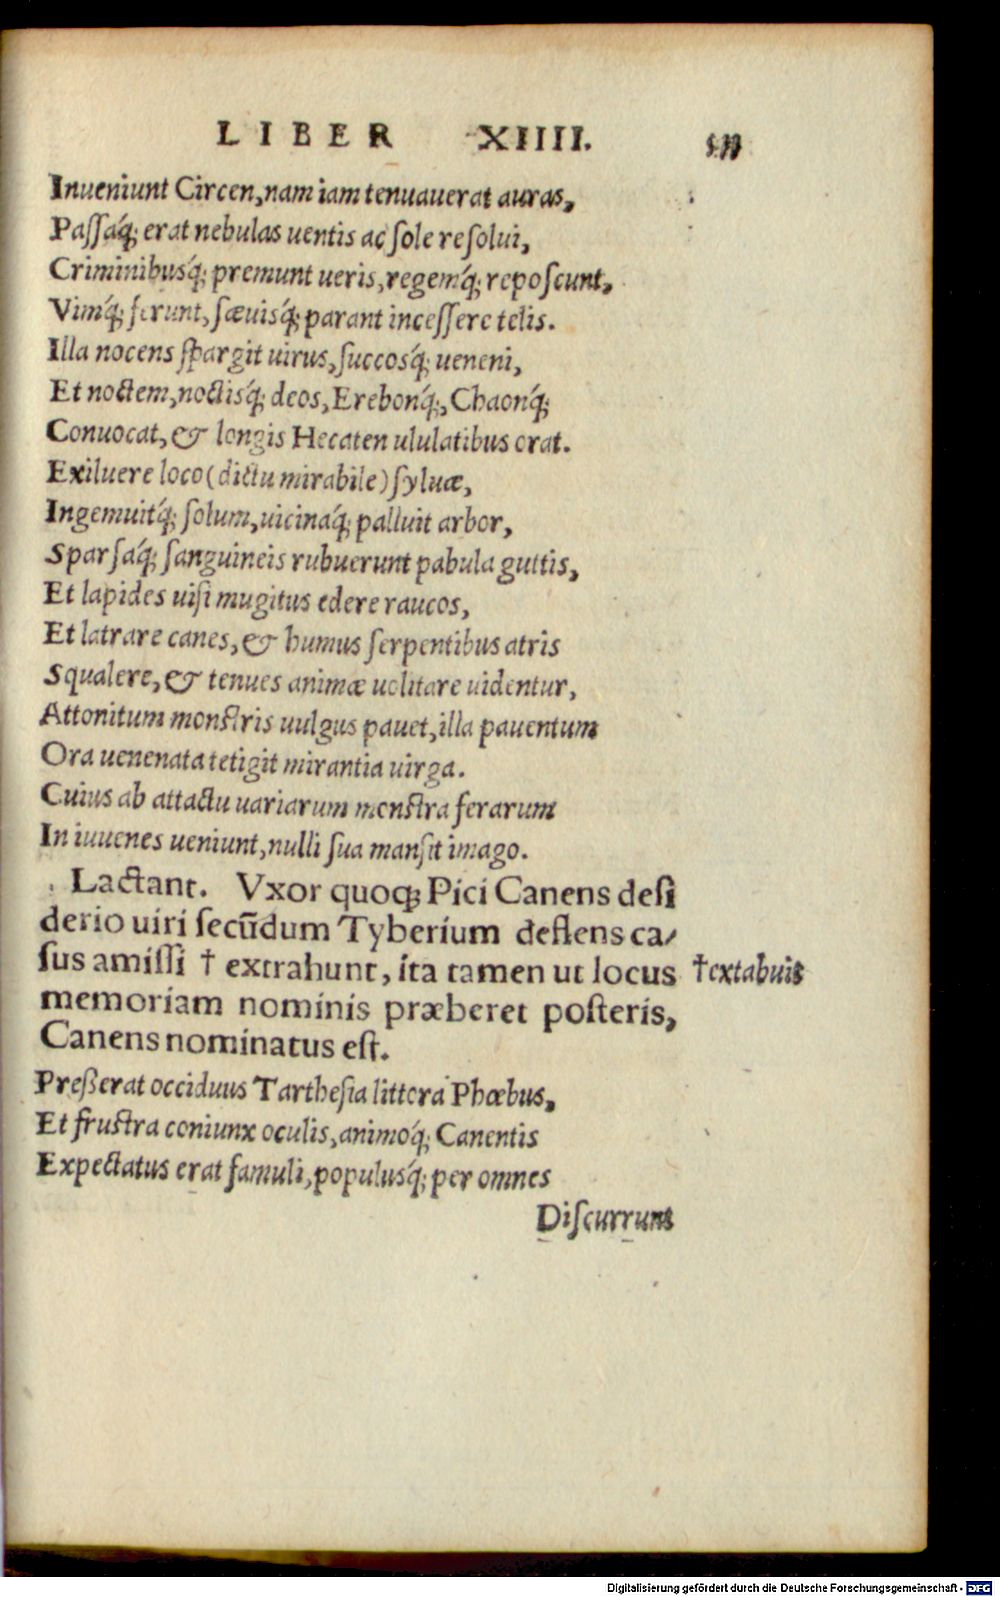 LIBER XIIII.
Inueniunt Circen, nam iam tenuauerat auras,
Passaq́; erat nebulas uentis ac sole resolui,
Criminibusq́; premunt ueris, regemq́; reposcunt,
Vimq́; ferunt, sæuisq́; parant incessere telis.
Illa nocens spargit uirus, succosq́; ueneni,
Et noctem, noctisq́; deos, Erebonq́;, Chaonq́;
Conuocat, & longis Hecaten ululatibus orat.
Exiluere loco (dictu mirabile) syluæ,
Ingemuitq́; solum, uicinaq́; palluit arbor,
Sparsaq́; sanguineis rubuerunt pabula guttis,
Et lapides uisi mugitus edere raucos,
Et latrare canes, & humus serpentibus atris
Squalere, & tenues animæ uolitare uidentur,
Attonitum monstris uulgus pauet, illa pauentum
Ora uenenata tetigit mirantia uirga.
Cuius ab attactu uariarum monstra ferarum
In iuuenes ueniunt, nulli sua mansit imago.
Lactant. Vxor quoq; Pici Canens desi
derio uiri secūdum Tyberium deflens ca/
sus amissi † extrahunt, ita tamen ut locus †extabuit
memoriam nominis præberet posteris,
Canens nominatus est.
Preßerat occiduus Tarthesia littora Phœbus,
Et frustra coniunx oculis, animoq́; Canentis
Expectatus erat famuli, populusq́; per omnes
Discurrunt
Digitalisierung gefördert durch die Deutsche Forschungsgemeinschaft - DFG